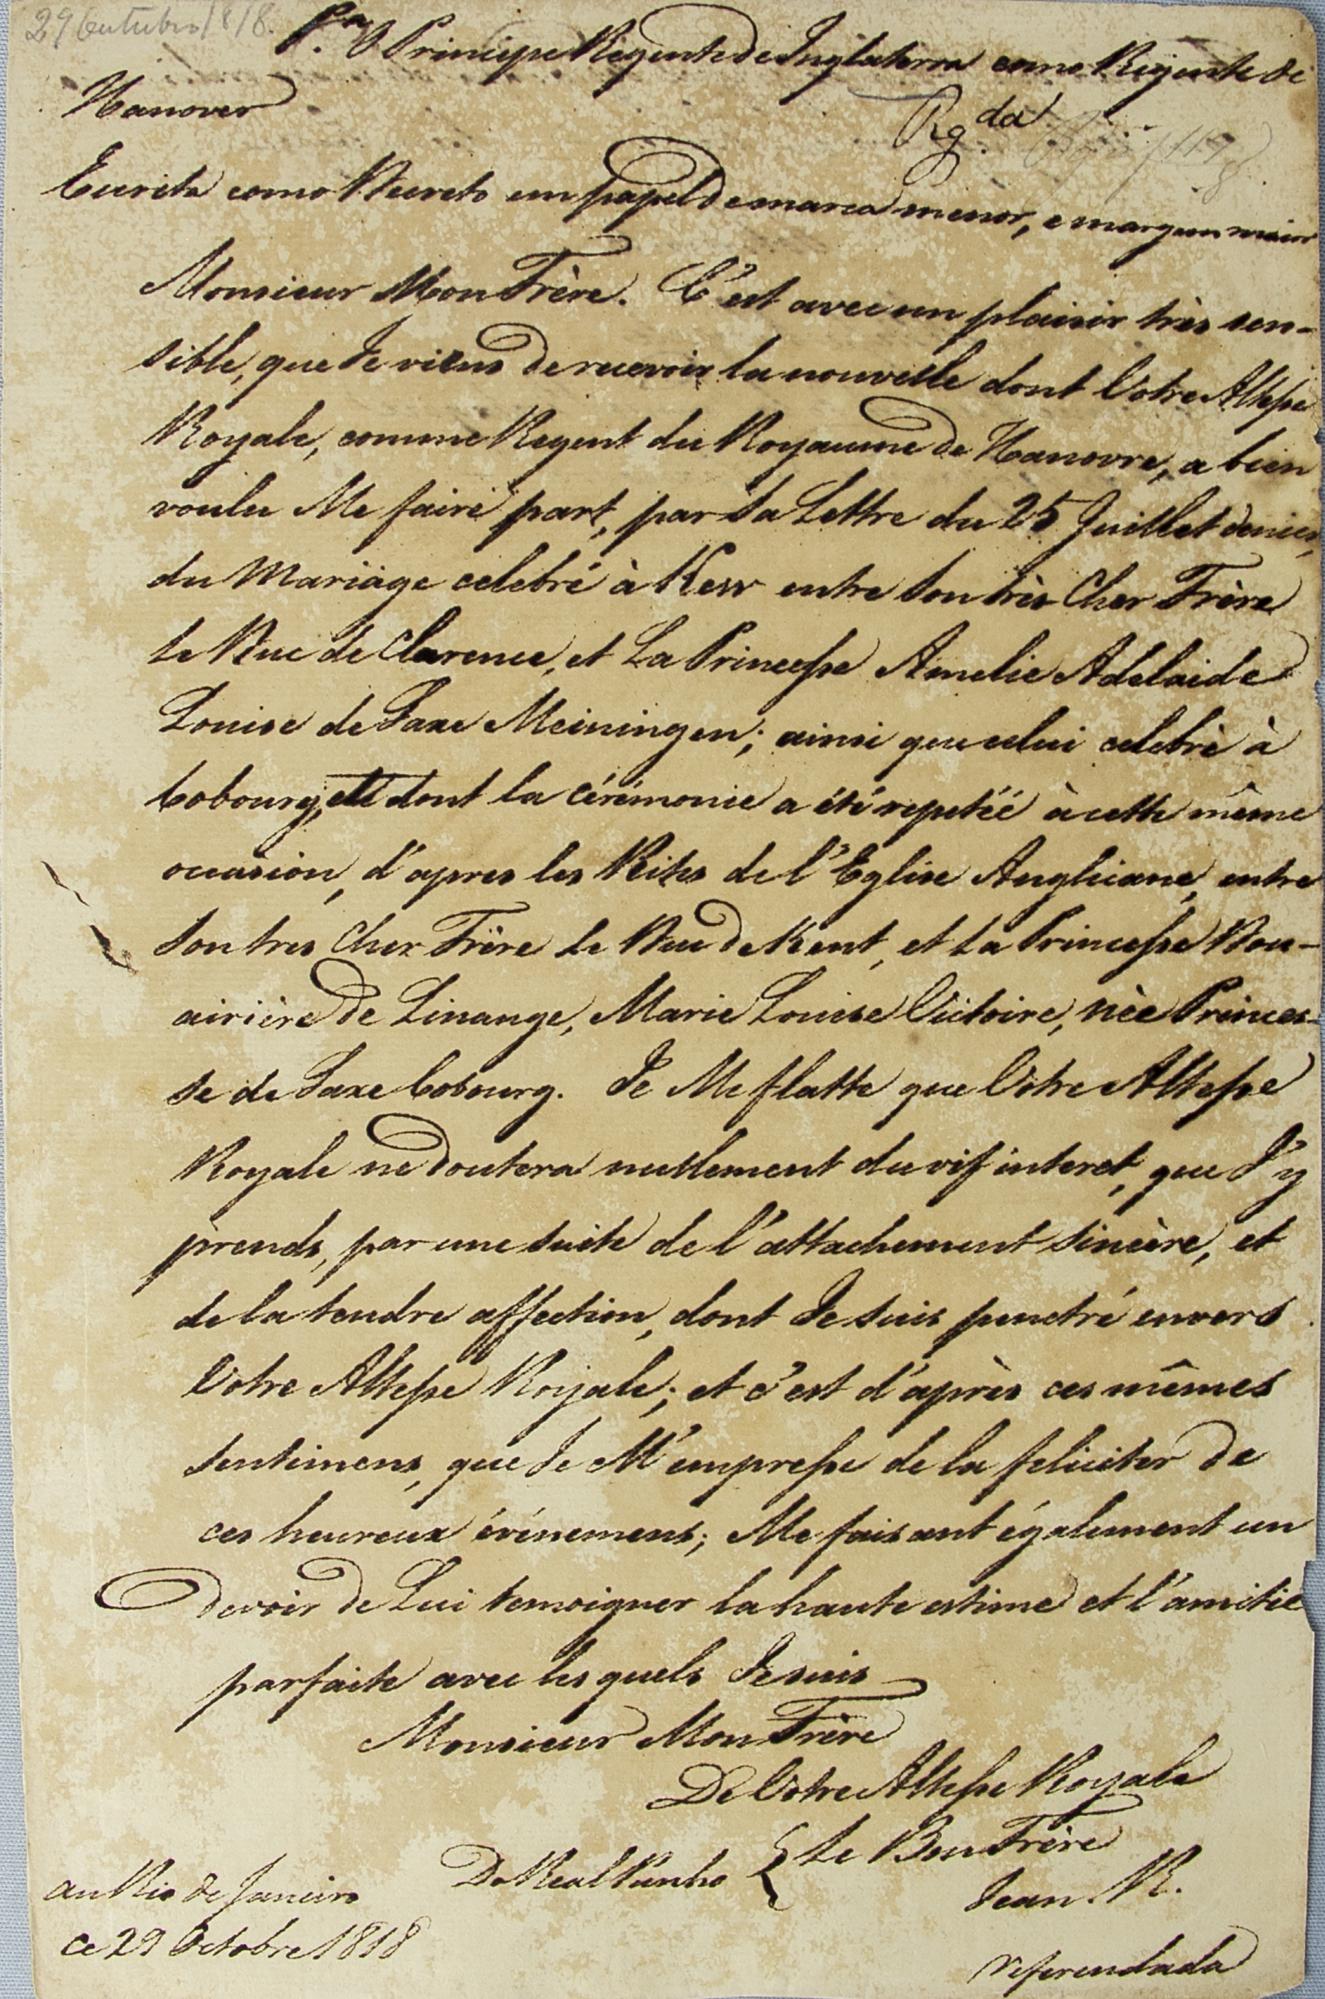 29 Outubro 1818.
P.ª O Principe Regente de Inglaterra como Regente de
Hanover
Rg.da
Escrita como Decreto em papel de marca menor, e margem maior
Monsieur Mon Frère. C'est avec un plaisir très sen-
sible, que Je viens de recevoir la nouvelle dont Votre Altesse
Royale, comme Regent du Royaume de Hanovre, a bien
voulu Me faire part, par Sa Lettre du 25 Juillet denier,
du Mariage celebré à Kew entre Son très Cher Frère
Le Duc de Clarence, et La Princesse Amelie Adelaide
Louise de Saxe Meiningen; ainsi que celui celebrè à
Cobourg, et dont la cérémonie a été repetéé à cette même
occasion, d'apres les Rites de l'Eglise Anglicane, entre
Son tres Cher Frère Le Duc de Kent, et La Princesse Dou-
airière de Linange, Marie Louise Victoire, nèe Princes-
se de Saxe Cobourg. Je Me flatte que Votre Altesse
Royale ne doutera nullement du vif interet, que J'y
prends, par une suite de l'attachement sincère, et
de la tendre affection, dont Je suis penetré envers
Votre Altesse Royale; et c'est d'après ces mêmes
sentimens, que Je M'empresse de la feliciter de
ces heureux événemens; Me faisant également un
devoir de Lui temoigner la haute estime et l'amitié
parfaite avec lesquels Je suis
Monsieur Mon Frère
De Votre Altesse Royale
Do Real Punho { Le Bon Frère
Jean R.
au Rio de Janeiro
ce 29 Octobre 1818
referendada